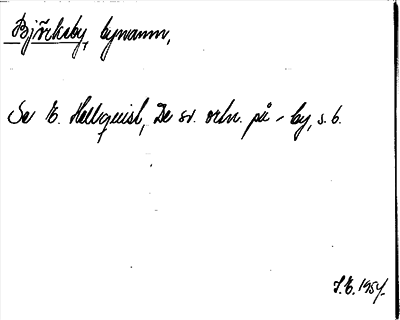 Björkeby, bynamn,
Se E. Hellquist, De sv. ortn. på -by, s. 6.
J.E. 1954.